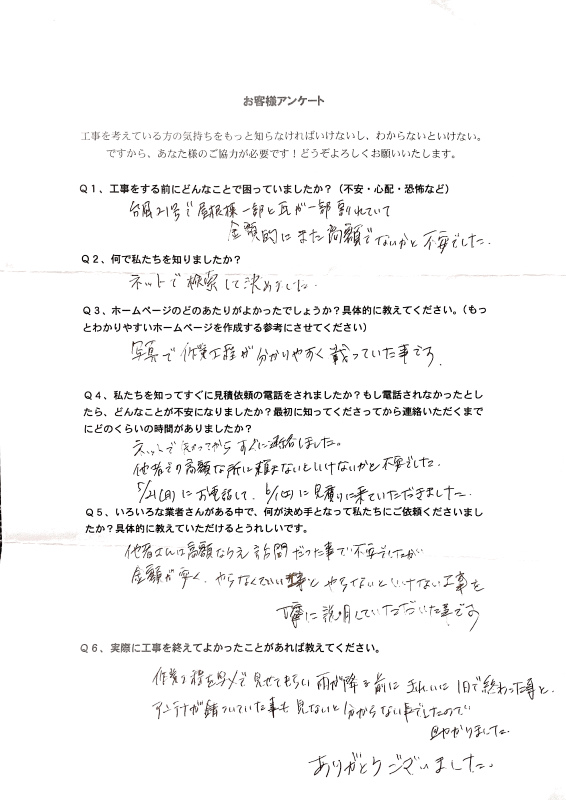 お客様アンケート
工事を考えている方の気持ちをもっと知らなければいけないし、わからないといけない。
ですから、あなた様のご協力が必要です！どうぞよろしくお願いいたします。
Ｑ１、工事をする前にどんなことで困っていましたか？（不安・心配・恐怖など）
台風21号で屋根棟一部と瓦が一部割れていて
金額的にまた高額でないかと不安でした.
Ｑ２、何で私たちを知りましたか？
ネットで検索して決めました.
Ｑ３、ホームページのどのあたりがよかったでしょうか？具体的に教えてください。（もっ
とわかりやすいホームページを作成する参考にさせてください）
写真で作業工程が分かりやすく載っていた事です.
Ｑ４、私たちを知ってすぐに見積依頼の電話をされましたか？もし電話されなかったとし
たら、どんなことが不安になりましたか？最初に知ってくださってから連絡いただくまで
にどのくらいの時間がありましたか？
ネットで分かってからすぐに連絡しました。
他者での高額な所に頼まないといけないかと不安でした.
5/21(月)にお電話して、6/1(土)に見積りに来ていただきました.
Ｑ５、いろいろな業者さんがある中で、何が決め手となって私たちにご依頼くださいまし
たか？具体的に教えていただけるとうれしいです。
他者さんは高額なうえ訪問だった事で不安でしたが
金額が安く、やらなくていい事とやらないといけない工事を
丁寧に説明していただいた事です
Ｑ６、実際に工事を終えてよかったことがあれば教えてください。
作業工程を写メで見せてもらい雨が降る前にきれいに1日で終わった事と、
アンテナが錆ついていた事も見ないと分からない事でしたので
助かりました.
ありがとうございました。